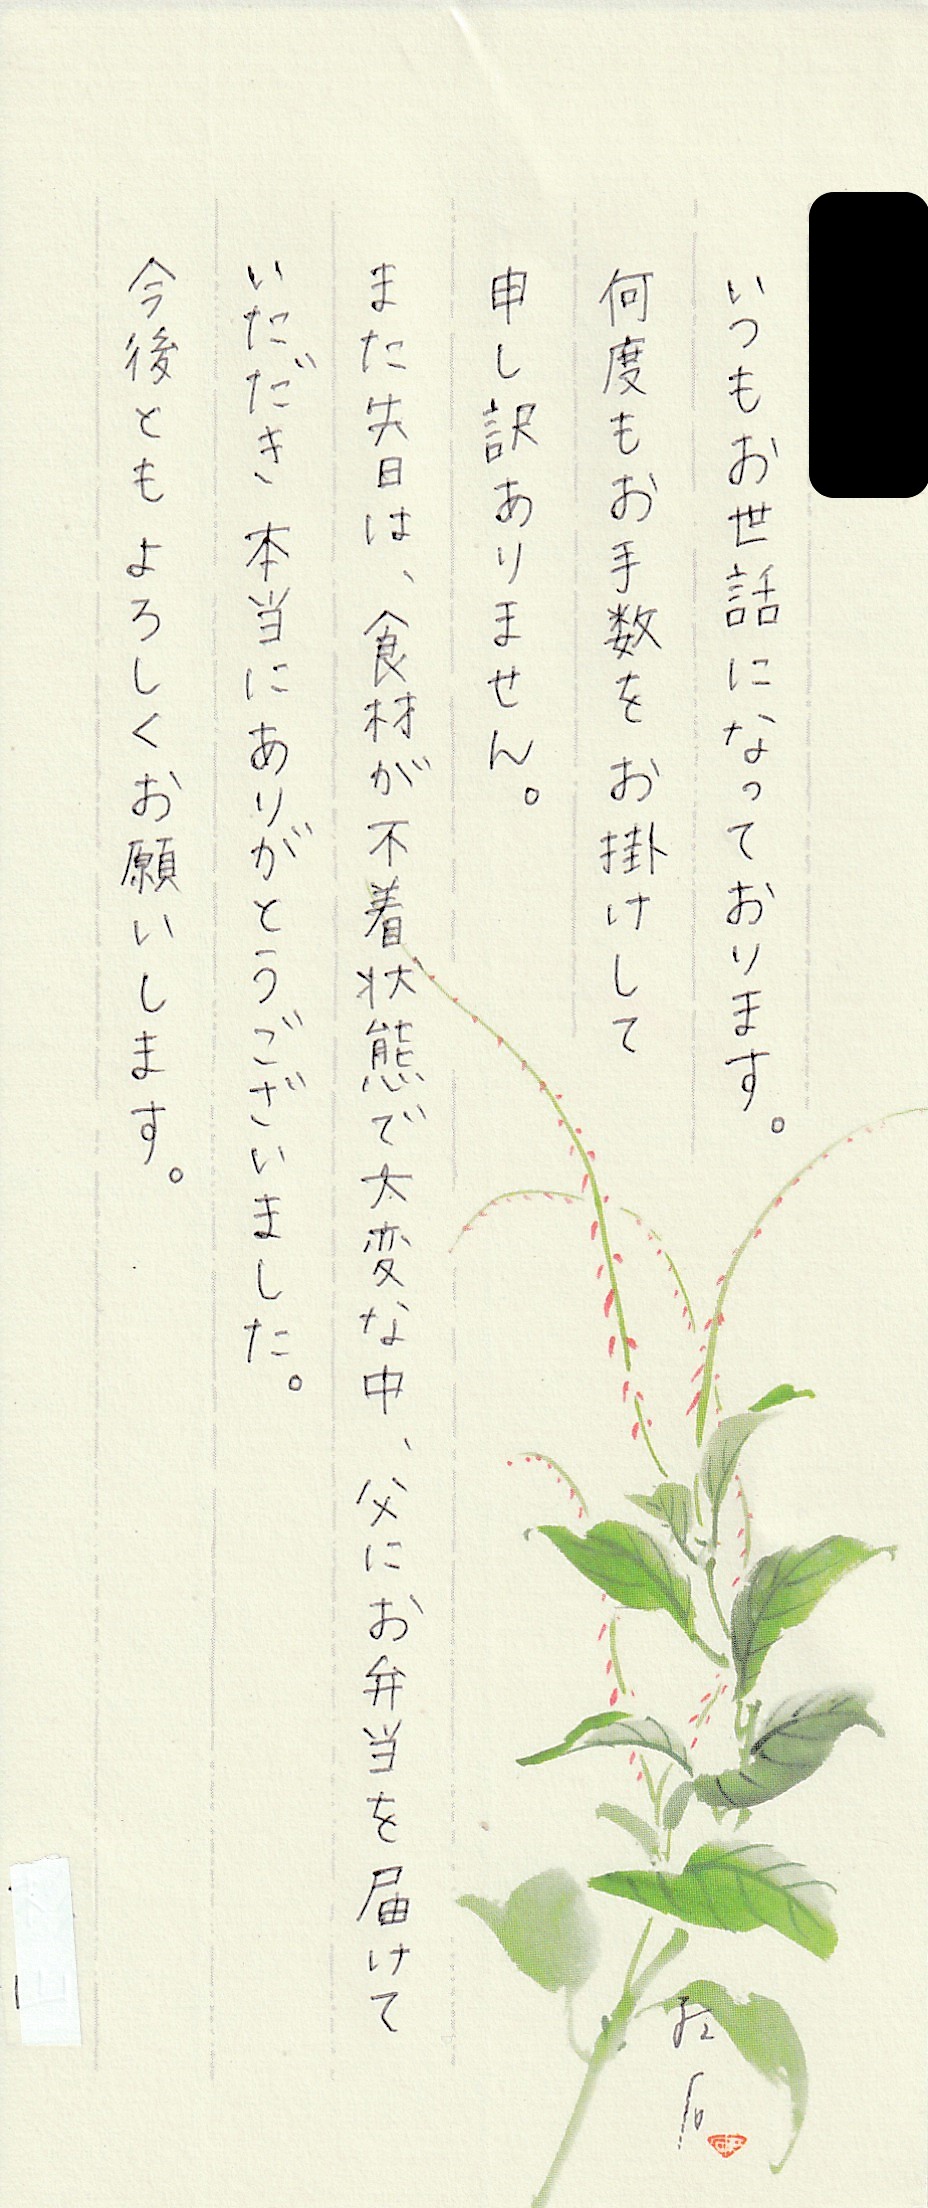 いつもお世話になっております。
何度もお手数をお掛けして
申し訳ありません。
また先日は、食材が不着状態で大変な中、父にお弁当を届けて
いただだき本当にありがとうございました。
今後ともよろしくお願いします。